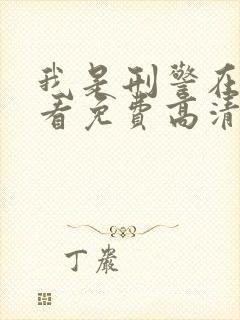 我是刑警在
看免费高清
丁嚴